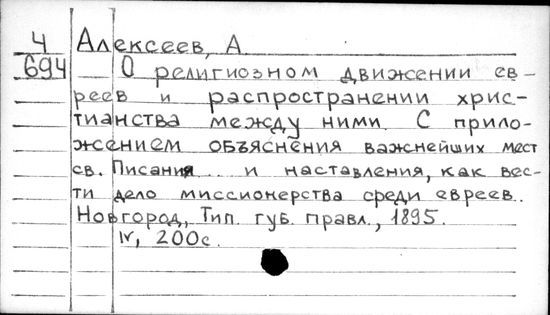 4 Алексеев, А
694 О религиозном движении ев-
реев и распространении хрис-
тианства между ними. С прило-
жением объяснения важнейших мест
св. Писания... и наставления, как вес-
ти дело миссионерства среди евреев..
Новгород, Тип. губ. правл., 1895.
IV, 200с.